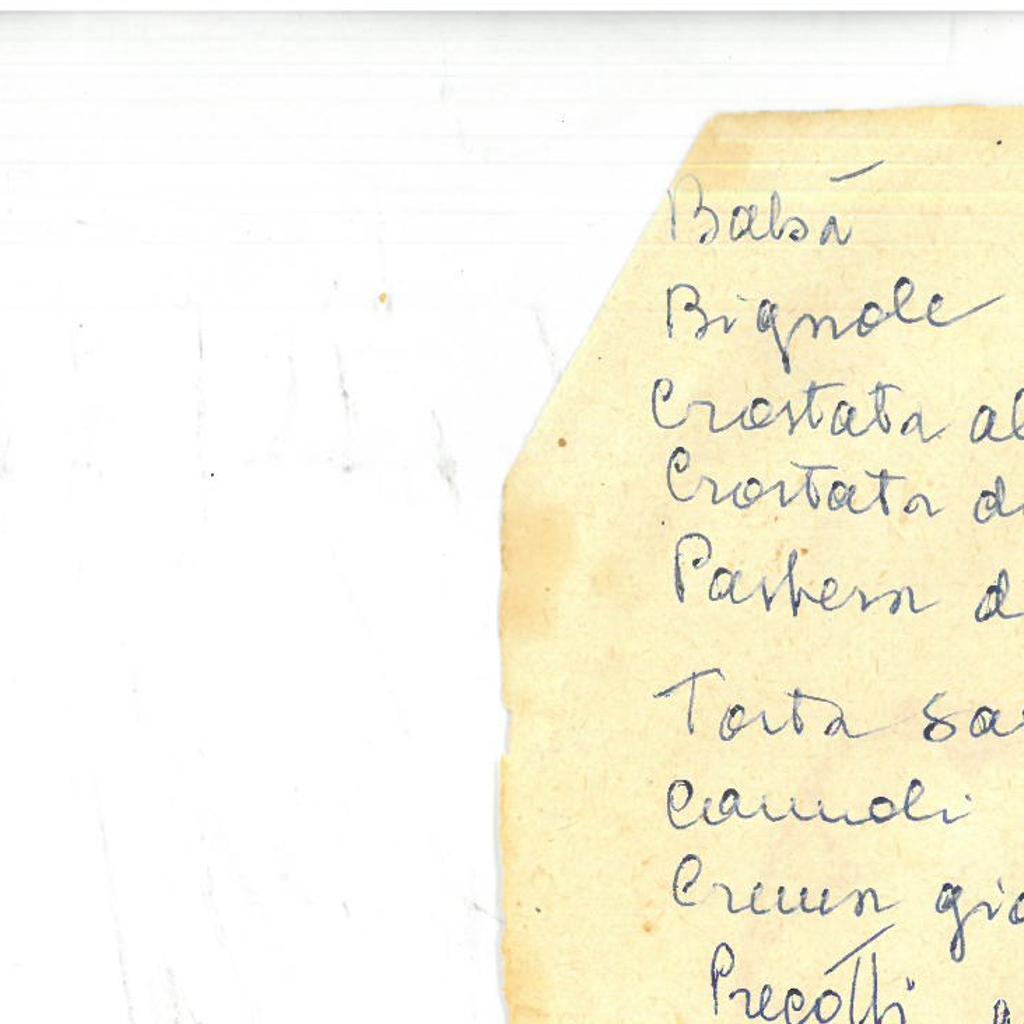 Babà
Bignole
Crostata al
Crostata di
Pastiera d
Torta sa
Cannoli
Crema gia